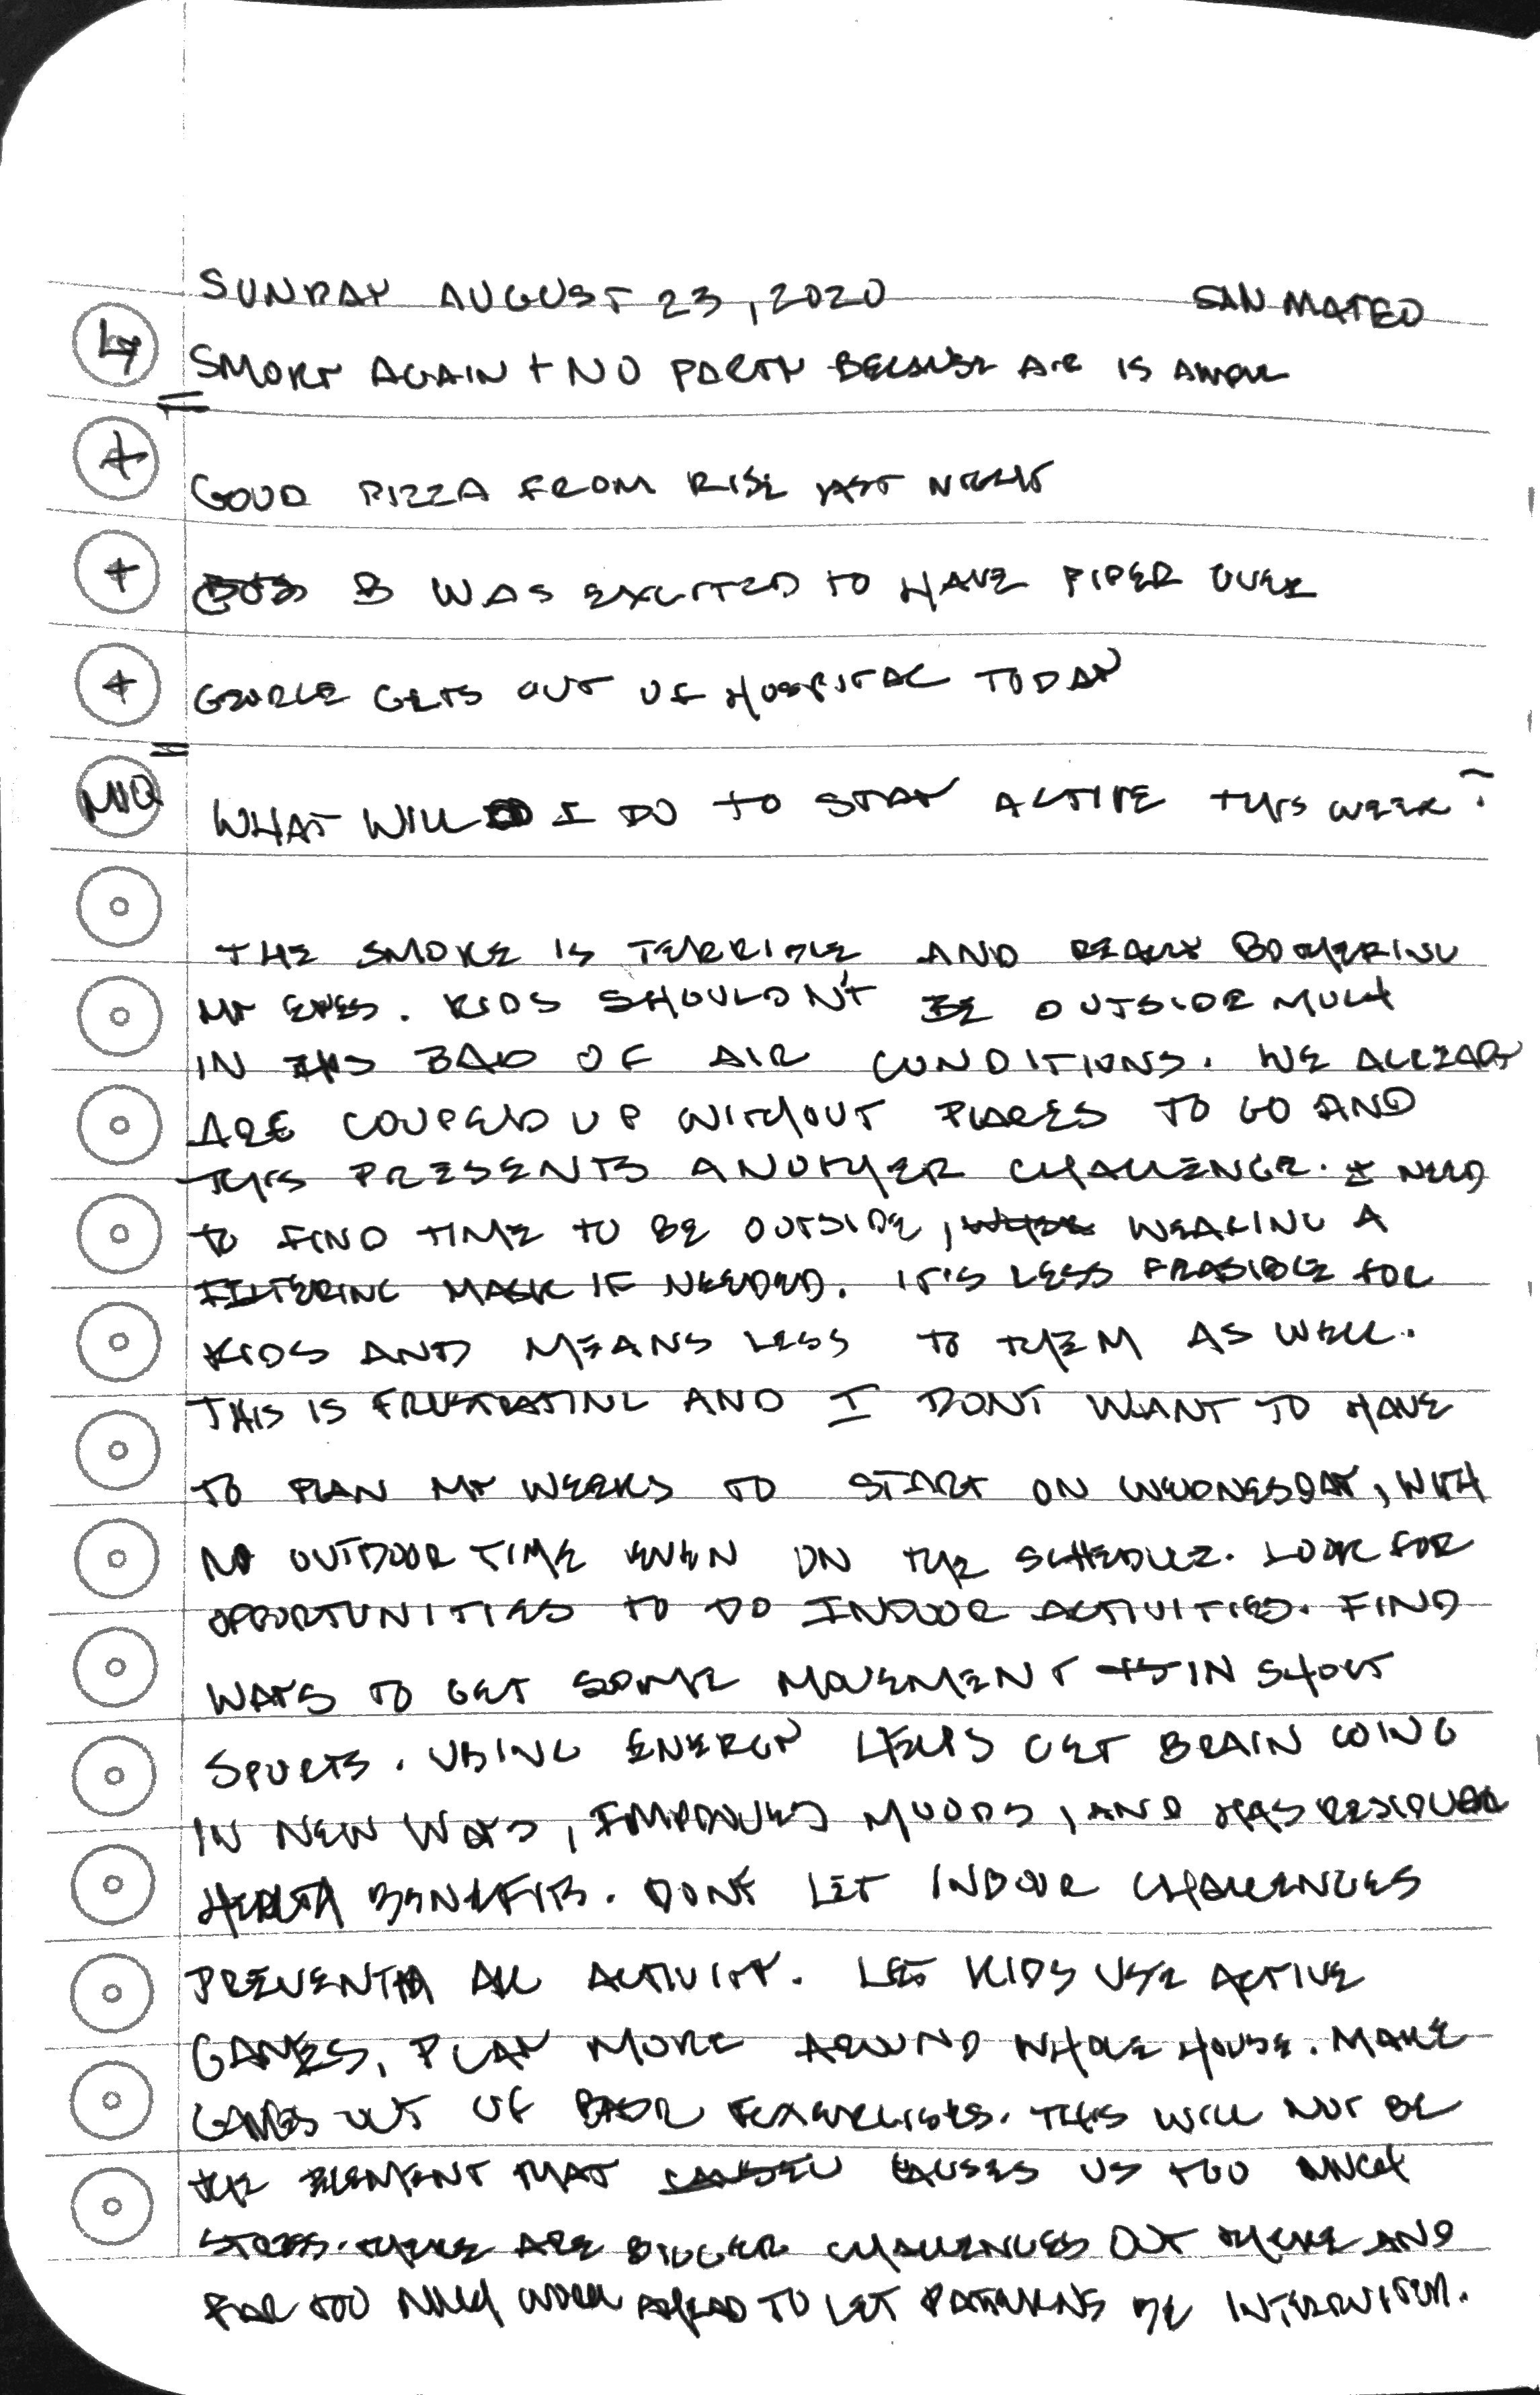 SUNDAY AUGUST 23, 2020 SAN MATEO
SMOKY AGAIN + NO PARTY BECAUSE AIR IS AWFUL
+ GOOD PIZZA FROM RISE LAST NIGHT
+ B WAS EXCITED TO HAVE PIPER OVER
+ GEORGE GETS OUT OF HOSPITAL TODAY
WHAT WILL I DO TO STAY ACTIVE THIS WEEK?
THE SMOKE IS TERRIBLE AND REALLY BOTHERING
MY EYES. KIDS SHOULDN'T BE OUTSIDE MUCH
IN THIS BAD OF AIR CONDITIONS. WE ALREADY
ARE COUPED UP WITHOUT PLACES TO GO AND
THIS PRESENTS ANOTHER CHALLENGE. I NEED
TO FIND TIME TO BE OUTSIDE, WEARING A
FILTERING MASK IF NEEDED. IT'S LESS FEASIBLE FOR
KIDS AND MEANS LESS TO THEM AS WELL.
THIS IS FRUSTRATING AND I DON'T WANT TO HAVE
TO PLAN MY WEEKS TO START ON WEDNESDAY, WITH
NO OUTDOOR TIME EVEN ON THE SCHEDULE. LOOK FOR
OPPORTUNITIES TO DO INDOOR ACTIVITIES. FIND
WAYS TO GET SOME MOVEMENT IN SHORT
SPURTS. USING ENERGY HELPS GET BRAIN GOING
IN NEW WAYS, IMPROVES MOODS, AND HAS RESIDUAL
HEALTH BENEFITS. DON'T LET INDOOR CHALLENGES
PREVENT ALL ACTIVITY. LET KIDS USE ACTIVE
GAMES, PLAY MORE AROUND WHOLE HOUSE. MAKE
GAMES OUT OF THIS WILL NOT BE
THE ELEMENT THAT CAUSES US TOO MUCH
STRESS. THERE ARE BIGGER CHALLENGES OUT THERE AND
FAR TOO MUCH WORK AHEAD TO LET PATTERNS BE